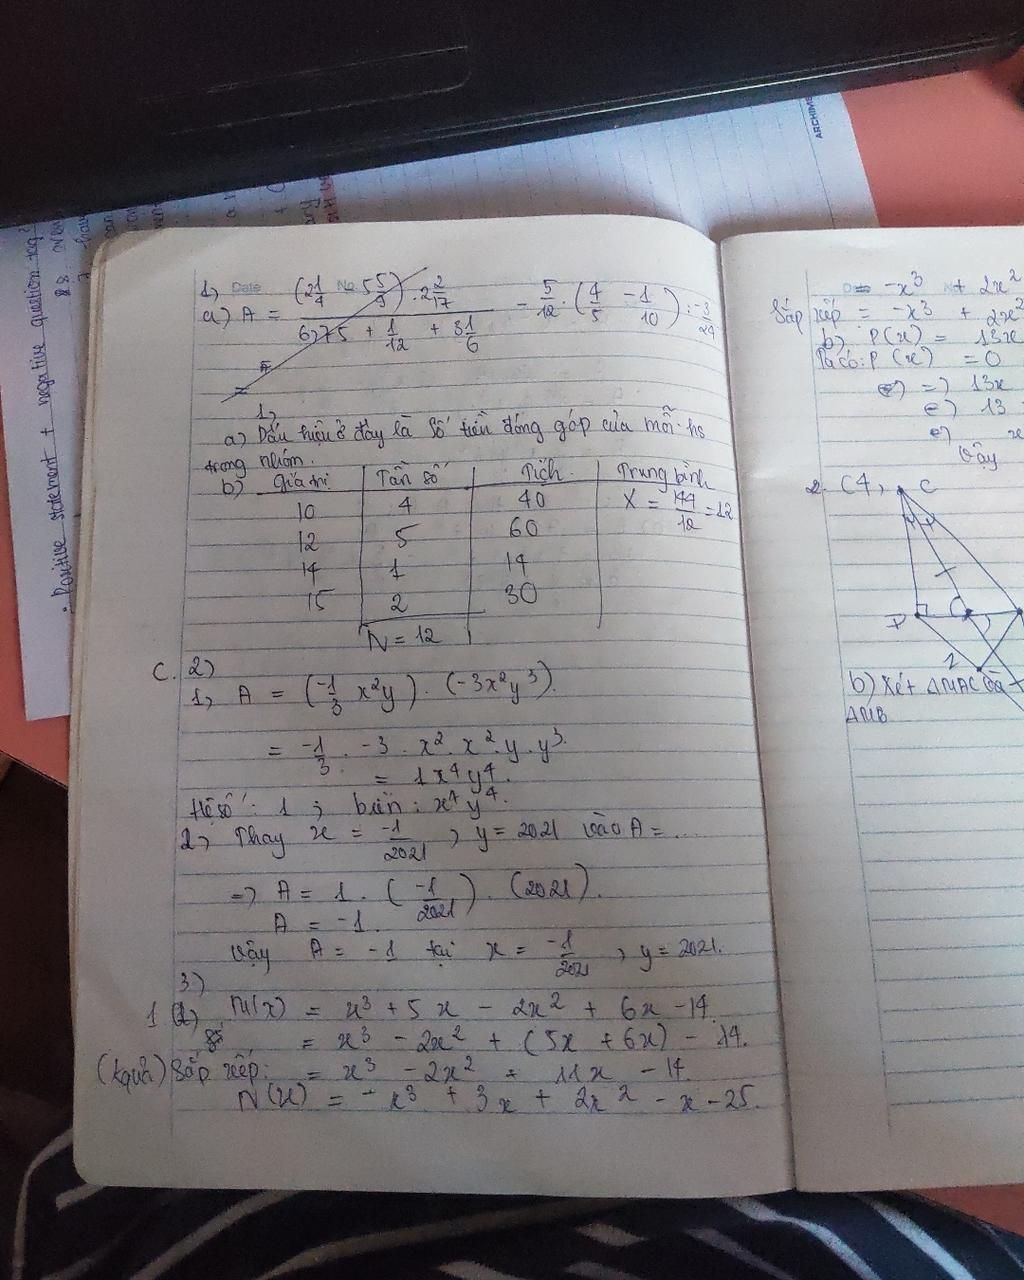 ARCHIM
• Positive statement + negative question tag
Date No.
1,
a) A = (2 1/4 5 5/9) . 2 2/17 / 6,75 + 1/12 + 3 1/6 - 5/12 . (4/5 - 1/10) : -3/24
=
1,
a) Dấu hiệu ở đây là số tiền đóng góp của mỗi hs
trong nhóm.
b) Giá trị Tần số Tích Trung bình
10 4 40 X = 144/12 = 12
12 5 60
14 1 14
15 2 30
N = 12
C. 2)
1, A = (-1/3 x²y) . (-3x²y³).
= -1/3 . -3 . x² . x² . y . y³.
= 1x⁴y⁴.
Hệ số : 1 ; biến : x⁴y⁴.
2, Thay x = -1/2021 , y = 2021 vào A = ...
=> A = 1 . (-1/2021) . (2021).
A = -1.
Vậy A = -1 tại x = -1/2021 , y = 2021.
3)
1 a) M(x) = x³ + 5x - 2x² + 6x - 14.
= x³ - 2x² + (5x + 6x) - 14.
(kquả) Sắp xếp: = x³ - 2x² + 11x - 14.
N(x) = -x³ + 3x + 2x² - x - 25.
= -x³ + 2x²
Sắp xếp = -x³ + 2x²
b) P(x) = 13x
Ta có: P(x) = 0
=> 13x
13
x
Vậy
2. C4, C
D
I
b) Xét ΔMAC và
ΔMB